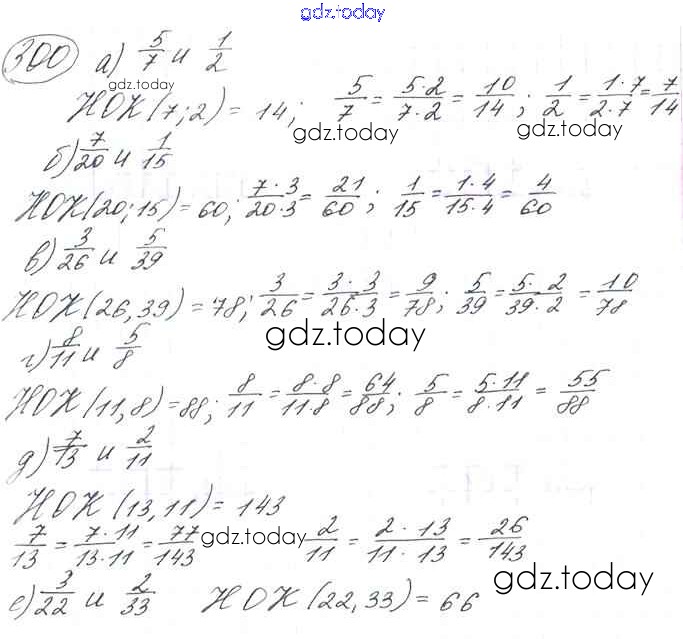 gdz.today
300 а) 5/7 и 1/2
gdz.today
НОК(7;2) = 14; 5/7 = 5·2/7·2 = 10/14; 1/2 = 1·7/2·7 = 7/14
gdz.today gdz.today
б) 7/20 и 1/15
НОК(20;15) = 60; 7·3/20·3 = 21/60; 1/15 = 1·4/15·4 = 4/60
в) 3/26 и 5/39
НОК(26,39) = 78; 3/26 = 3·3/26·3 = 9/78; 5/39 = 5·2/39·2 = 10/78
gdz.today
г) 8/11 и 5/8
НОК(11,8) = 88; 8/11 = 8·8/11·8 = 64/88; 5/8 = 5·11/8·11 = 55/88
д) 7/13 и 2/11
НОК(13,11) = 143
7/13 = 7·11/13·11 = 77/143 gdz.today 2/11 = 2·13/11·13 = 26/143
gdz.today
е) 3/22 и 2/33 НОК(22,33) = 66